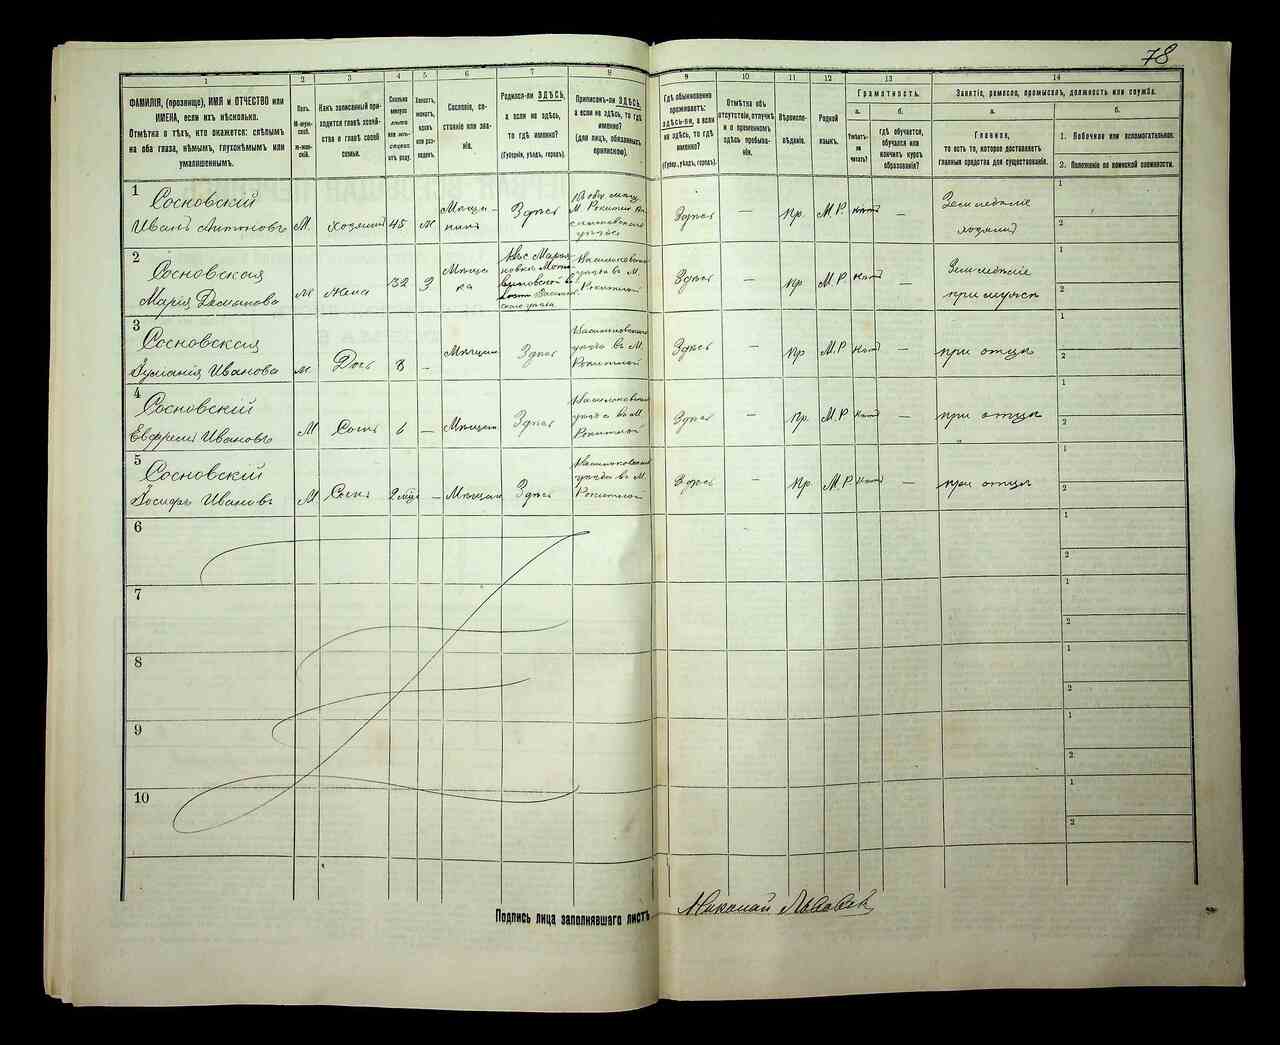 78
1
2
3
4
5
6
7
8
9
10
11
12
13
14
ФАМИЛІЯ, (прозвище), ИМЯ и ОТЧЕСТВО или
ИМЕНА, если ихъ нѣсколько.
Отмѣтка о тѣхъ, кто окажется: слѣпымъ
на оба глаза, нѣмымъ, глухонѣмымъ или
умалишеннымъ.
Полъ.
Какъ записанный при-
ходится главѣ хозяй-
ства и главѣ своей
семьи.
Сословіе, со-
стояніе или зва-
ніе.
Родился-ли ЗДѢСЬ,
а если не здѣсь,
то гдѣ именно?
(Губернія, уѣздъ, городъ).
Приписанъ-ли ЗДѢСЬ,
а если не здѣсь, то гдѣ
именно?
(для лицъ, обязанныхъ
припискою).
Гдѣ обыкновенно
проживаетъ:
ЗДѢСЬ-ли, а если
не здѣсь, то гдѣ
именно?
(Губер., уѣздъ, городъ).
Отмѣтка объ
отсутствіи, отлучкѣ
и о временномъ
здѣсь пребыва-
ніи.
Вѣроиспо-
вѣданіе.
Родной
языкъ.
Грамотность.
а.
б.
Умѣетъ-
ли
читать?
гдѣ обучается,
обучался или
кончилъ курсъ
образованія?
Занятіе, ремесло, промыселъ, должность или служба.
а.
б.
Главное,
то есть то, которое доставляетъ
главныя средства для существованія.
1. Побочное или вспомогательное.
2. Положеніе по воинской повинности.
1
Сосновскій
Иванъ Антоновъ
М.
Хозяинъ
45
Ж
Мѣща-
нинъ
Здѣсь
Здѣсь
—
Пр.
М.Р.
нѣтъ
—
Земледѣліе
хозяинъ
1
2
2
Сосновская
Марія Демьянова
Жена
32
З
Мѣща
ка
Здѣсь
—
Пр
М.Р.
нѣтъ
Земледѣліе
при мужѣ
1
2
3
Сосновская
Іуліанія Иванова
Дочь
8
—
Мѣщан
Здѣсь
Васильковскаго
уѣзда въ М.
Рокитной
Здѣсь
—
Пр
М.Р.
нѣтъ
—
при отцѣ
1
2
4
Сосновскій
Евфремъ Ивановъ
М
Сынъ
6
—
Мѣщан
Здѣсь
Васильковскаго
уѣзда въ М.
Рокитной
Здѣсь
—
Пр.
М.Р.
нѣтъ
—
при отцѣ
1
2
5
Сосновскій
Іосифъ Ивановъ
М
Сынъ
—
Мѣщан
Здѣсь
Васильковскаго
уѣзда въ М.
Рокитной
Здѣсь
—
Пр
М.Р.
нѣтъ
—
при отцѣ
1
2
6
1
2
7
1
2
8
1
2
9
1
2
10
1
2
Подпись лица заполнявшаго листъ
Николай